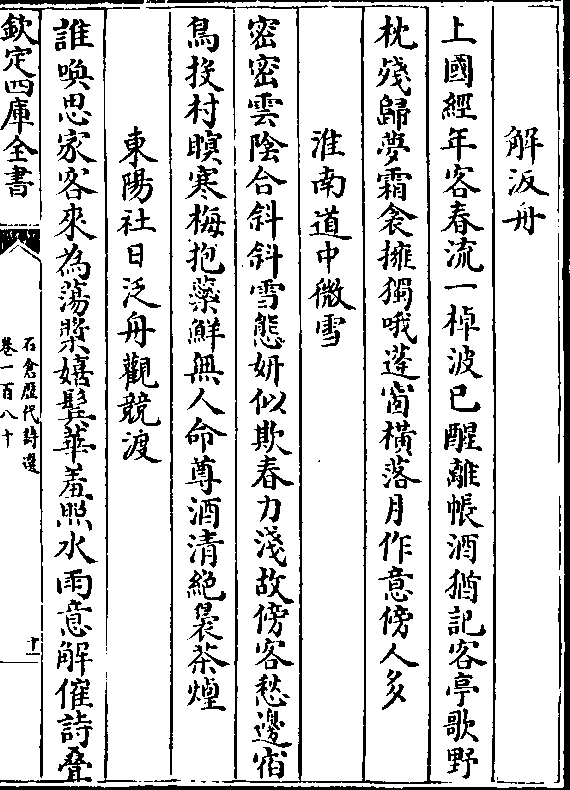 解汳舟
上國經年客春流一棹波已醒離帳酒猶記客亭歌野
枕殘歸夢霜衾擁獨哦蓬窗橫落月作意傍人多
淮南道中微雪
密密雲陰合斜斜雪態妍似欺春力淺故傍客愁邊宿
鳥投村暝寒梅抱蘂鮮無人命尊酒清絶裊茶煙
東陽社日泛舟觀競渡
誰喚思家客來為蕩槳嬉鬓華羞照水雨意解催詩疊
欽定四庫全書
石倉歷代詩選
卷一百八十
十一